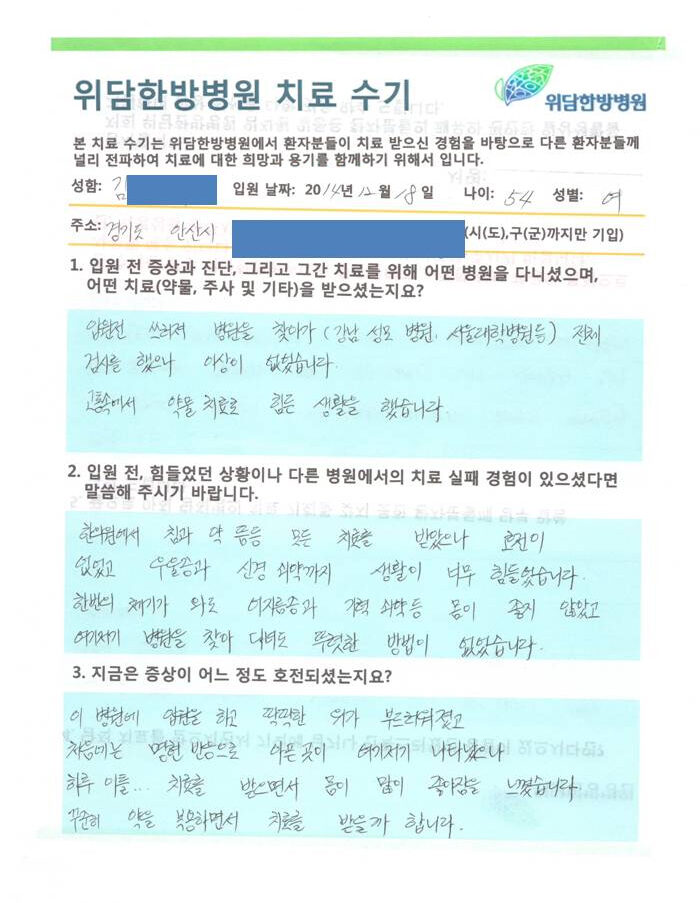 위담한방병원 치료 수기
위담한방병원
본 치료 수기는 위담한방병원에서 환자분들이 치료 받으신 경험을 바탕으로 다른 환자분들께
널리 전파하여 치료에 대한 희망과 용기를 함께하기 위해서 입니다.
성함: 김 입원 날짜: 2014년 12월 18일 나이: 54 성별: 여
주소: 경기도 안산시 (시(도),구(군)까지만 기입)
1. 입원 전 증상과 진단, 그리고 그간 치료를 위해 어떤 병원을 다니셨으며,
어떤 치료(약물, 주사 및 기타)을 받으셨는지요?
입원전 쓰러져 병원을 찾아가 (강남 성모 병원, 서울대학병원등) 전체
검사를 했으나 이상이 없었습니다.
고통속에서 약물 치료로 힘든 생활을 했습니다.
2. 입원 전, 힘들었던 상황이나 다른 병원에서의 치료 실패 경험이 있으셨다면
말씀해 주시기 바랍니다.
한의원에서 침과 약 뜸등 모든 치료를 받았으나 호전이
없었고 우울증과 신경 쇠약까지 생활이 너무 힘들었습니다.
한번의 체기가 와도 어지름증과 기력 쇠약등 몸이 좋지 않았고
여기저기 병원을 찾아 다녀도 뚜렷한 방법이 없었습니다.
3. 지금은 증상이 어느 정도 호전되셨는지요?
이 병원에 입원을 하고 딱딱한 위가 부드러워졌고
처음에는 명현 반응으로 아픈곳이 여기저기 나타났으나
하루 이틀... 치료를 받으면서 몸이 많이 좋아짐을 느꼈습니다.
꾸준히 약을 복용하면서 치료를 받을까 합니다.